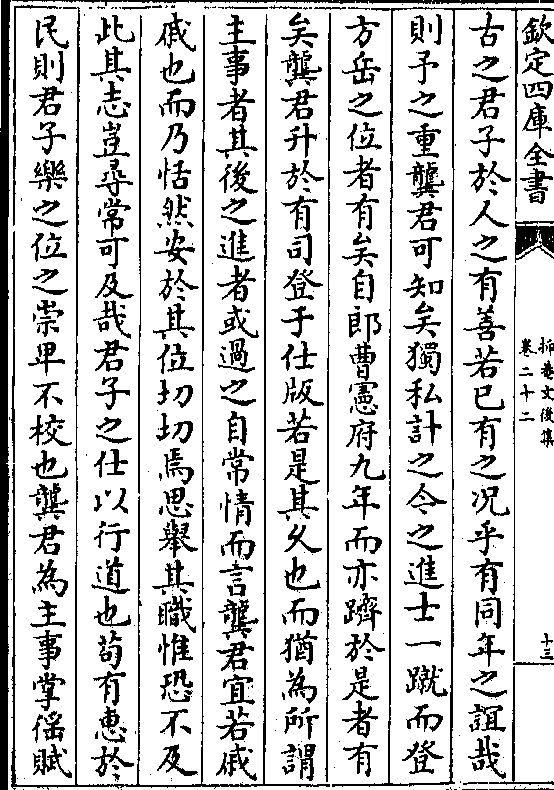 欽定四庫全書
抑菴文後集
卷二十二
十三
古之君子於人之有善若已有之况乎有同年之誼哉
則予之重龔君可知矣獨私計之今之進士一蹴而登
方岳之位者有矣自郎曹憲府九年而亦躋於是者有
矣龔君升於有司登于仕版若是其久也而猶為所謂
主事者其後之進者或過之自常情而言龔君宜若戚
戚也而乃恬然安於其位切切焉思舉其職惟恐不及
此其志豈尋常可及哉君子之仕以行道也茍有恵於
民則君子樂之位之崇卑不校也龔君為主事掌徭賦